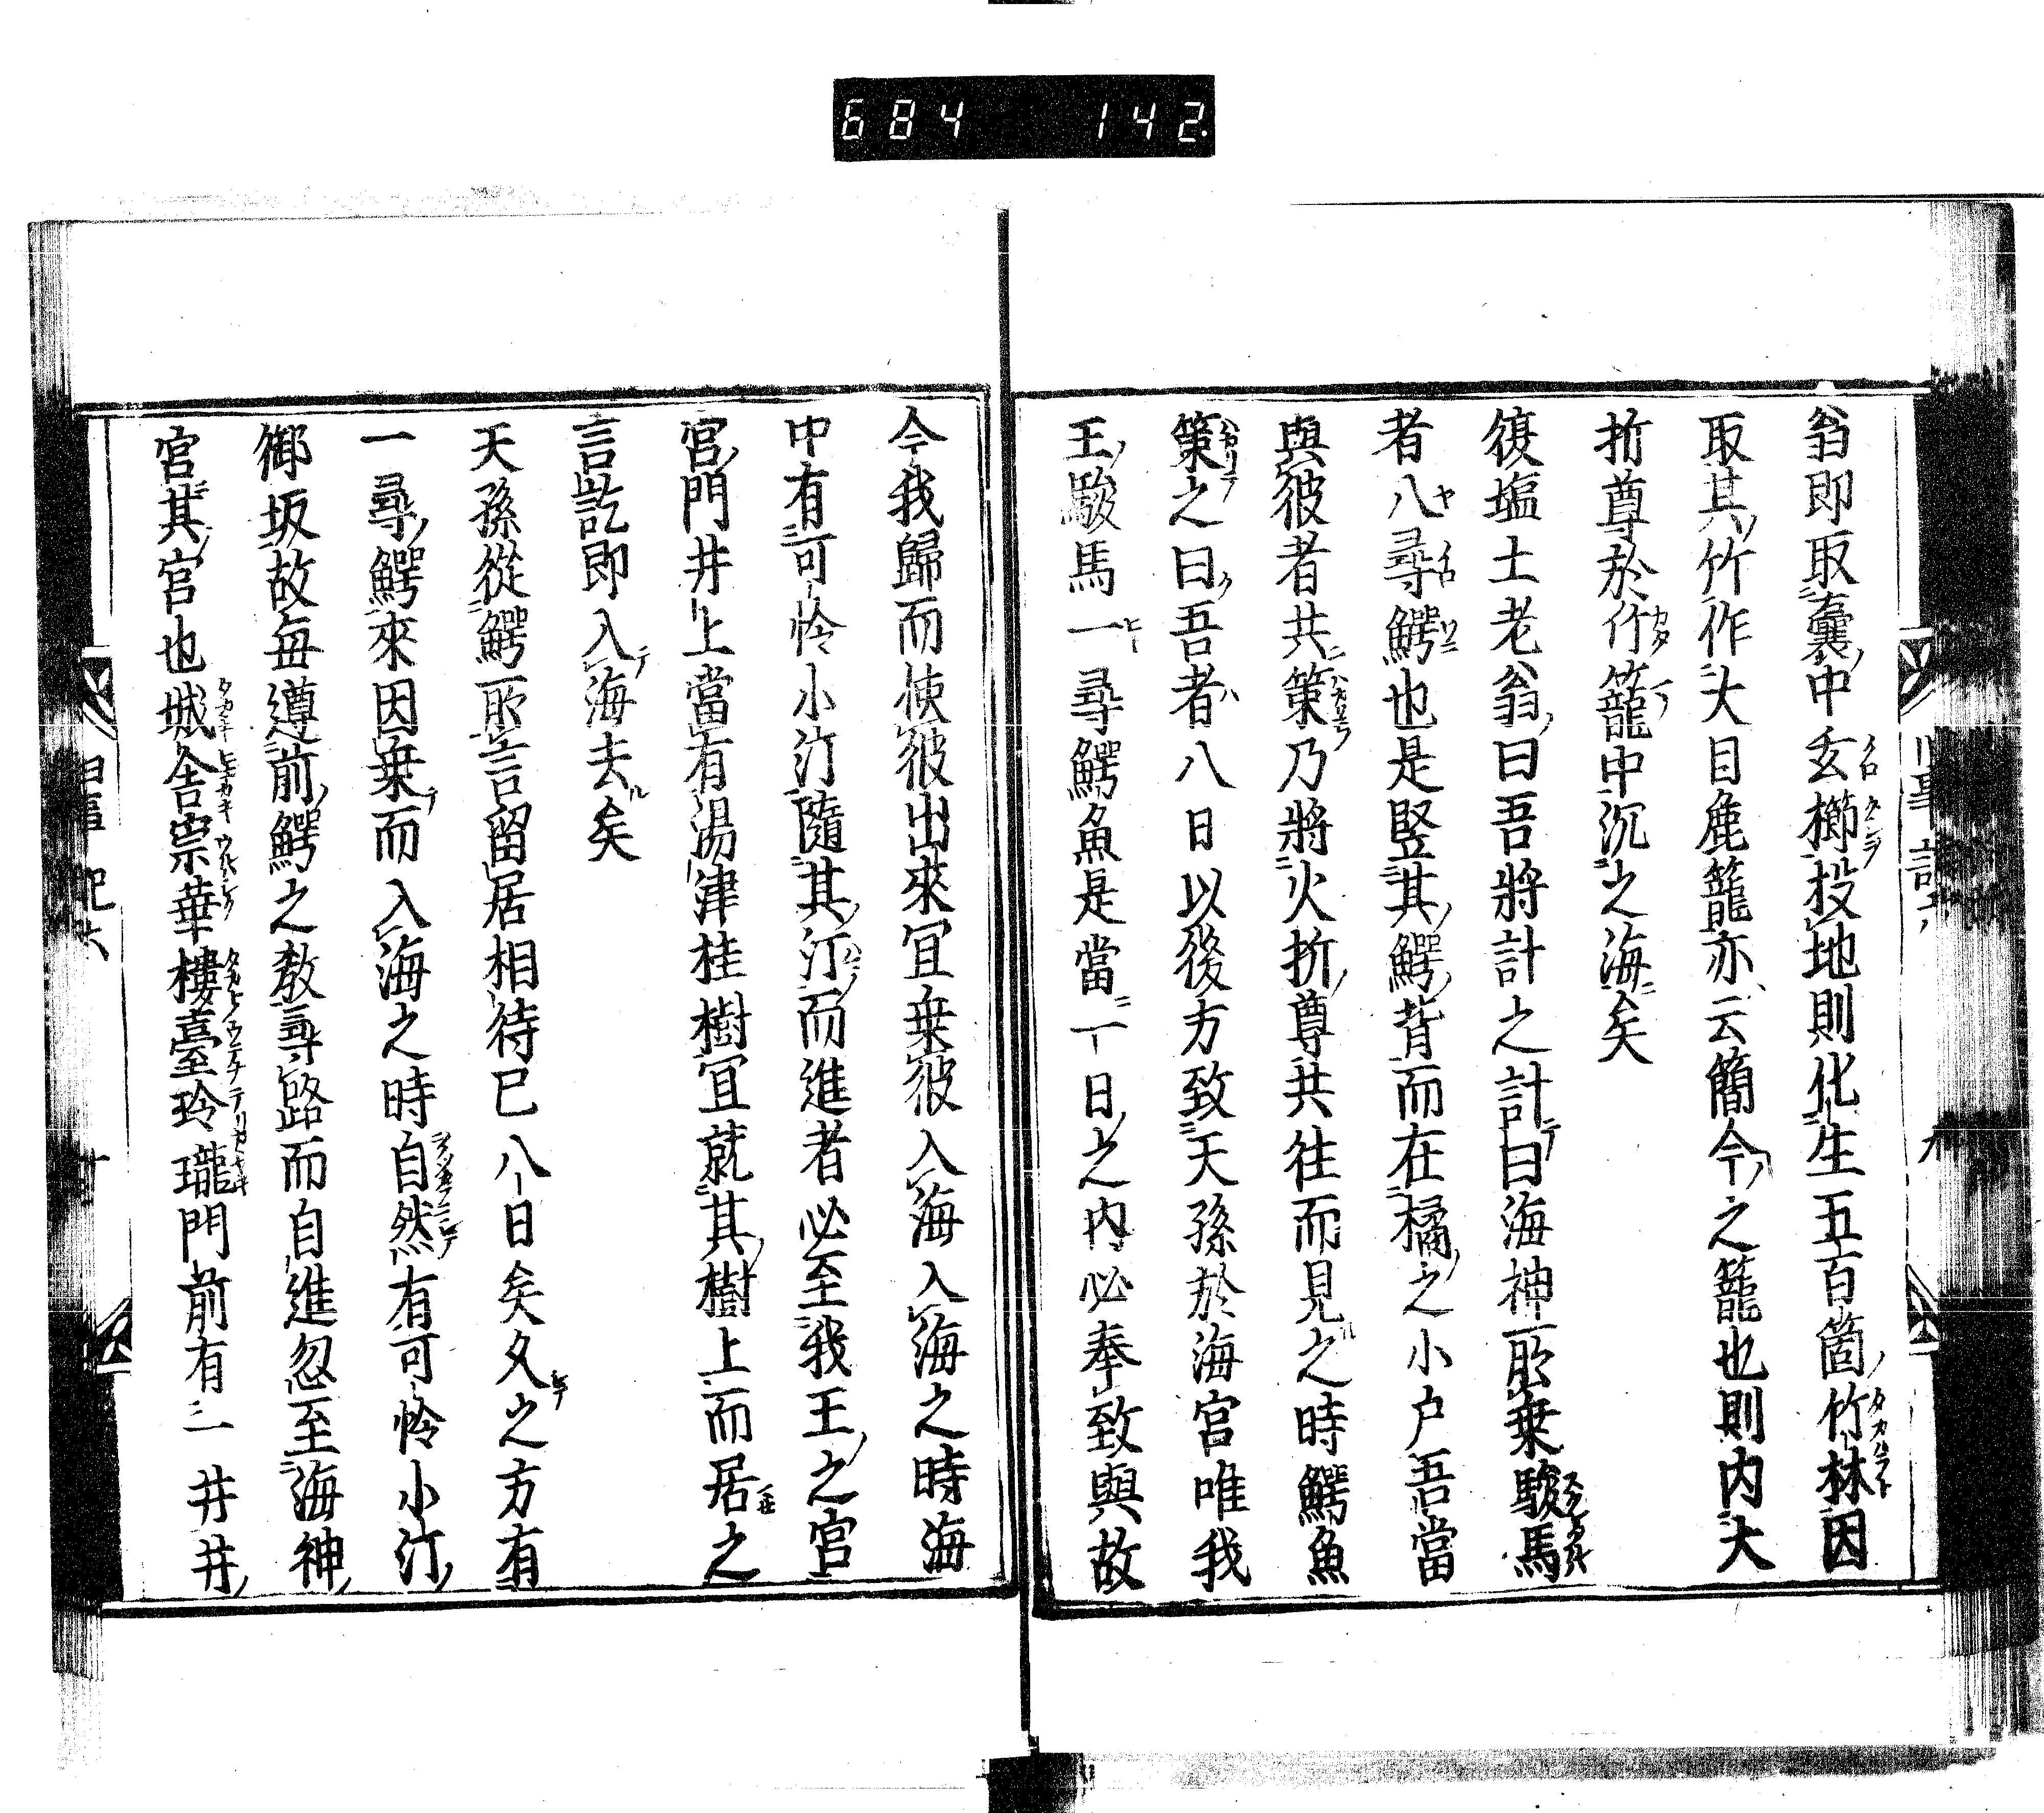 684 142
翁即取囊中玄櫛投地則化生五百箇竹林因
取其竹作大目麁籠亦云簡今之籠也則内大
折尊於竹籠中沉之海矣
復塩土老翁曰吾將計之計曰海神所乗駿馬
者八尋鰐也是竪其鰐背而在橘之小户吾當
與彼者共策乃將火折尊共往而見之時鰐魚
策之曰吾者八日以後方致天孫於海宮唯我
王駿馬一尋鰐魚是當一日之内必奉致與故
今我歸而使彼出來宜乗彼入海入海之時海
中有可怜小汀隨其汀而進者必至我王之宮
宮門井上當有湯津桂樹宜就其樹上而居之
言訖即入海去矣
天孫從鰐所言留居相待已八日矣久之方有
一尋鰐來因乗而入海之時自然有可怜小汀
御坂故毎遵前鰐之教尋路而自進忽至海神
宮其宮也城舎崇華樓臺玲瓏門前有一井井